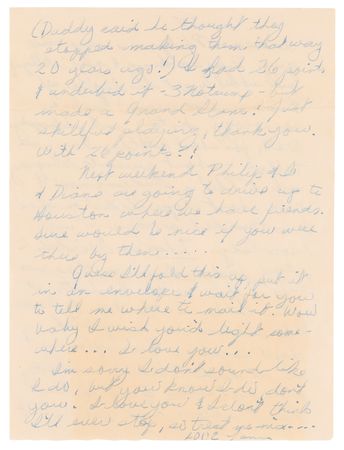 (Daddy said he thought they
stopped making them that way
20 years ago!) I had 26 points
& underbid it - 3 Notrump - but
made a Grand Slam! Just
skillful playing, thank you.
With 26 points!!
Next weekend Philip & I
& Diane are going to drive up to
Houston where we have friends.
Sure would be nice if you were
there by then.....
Guess I'll fold this up, put it
in an envelope & wait for you
to tell me where to mail it. Wow
baby I wish you'd light some-
where... I love you...
I'm sorry I don't sound like
I do, but you know I do, don't
you. I love you & I don't think
I'll ever stop, so trust me
love